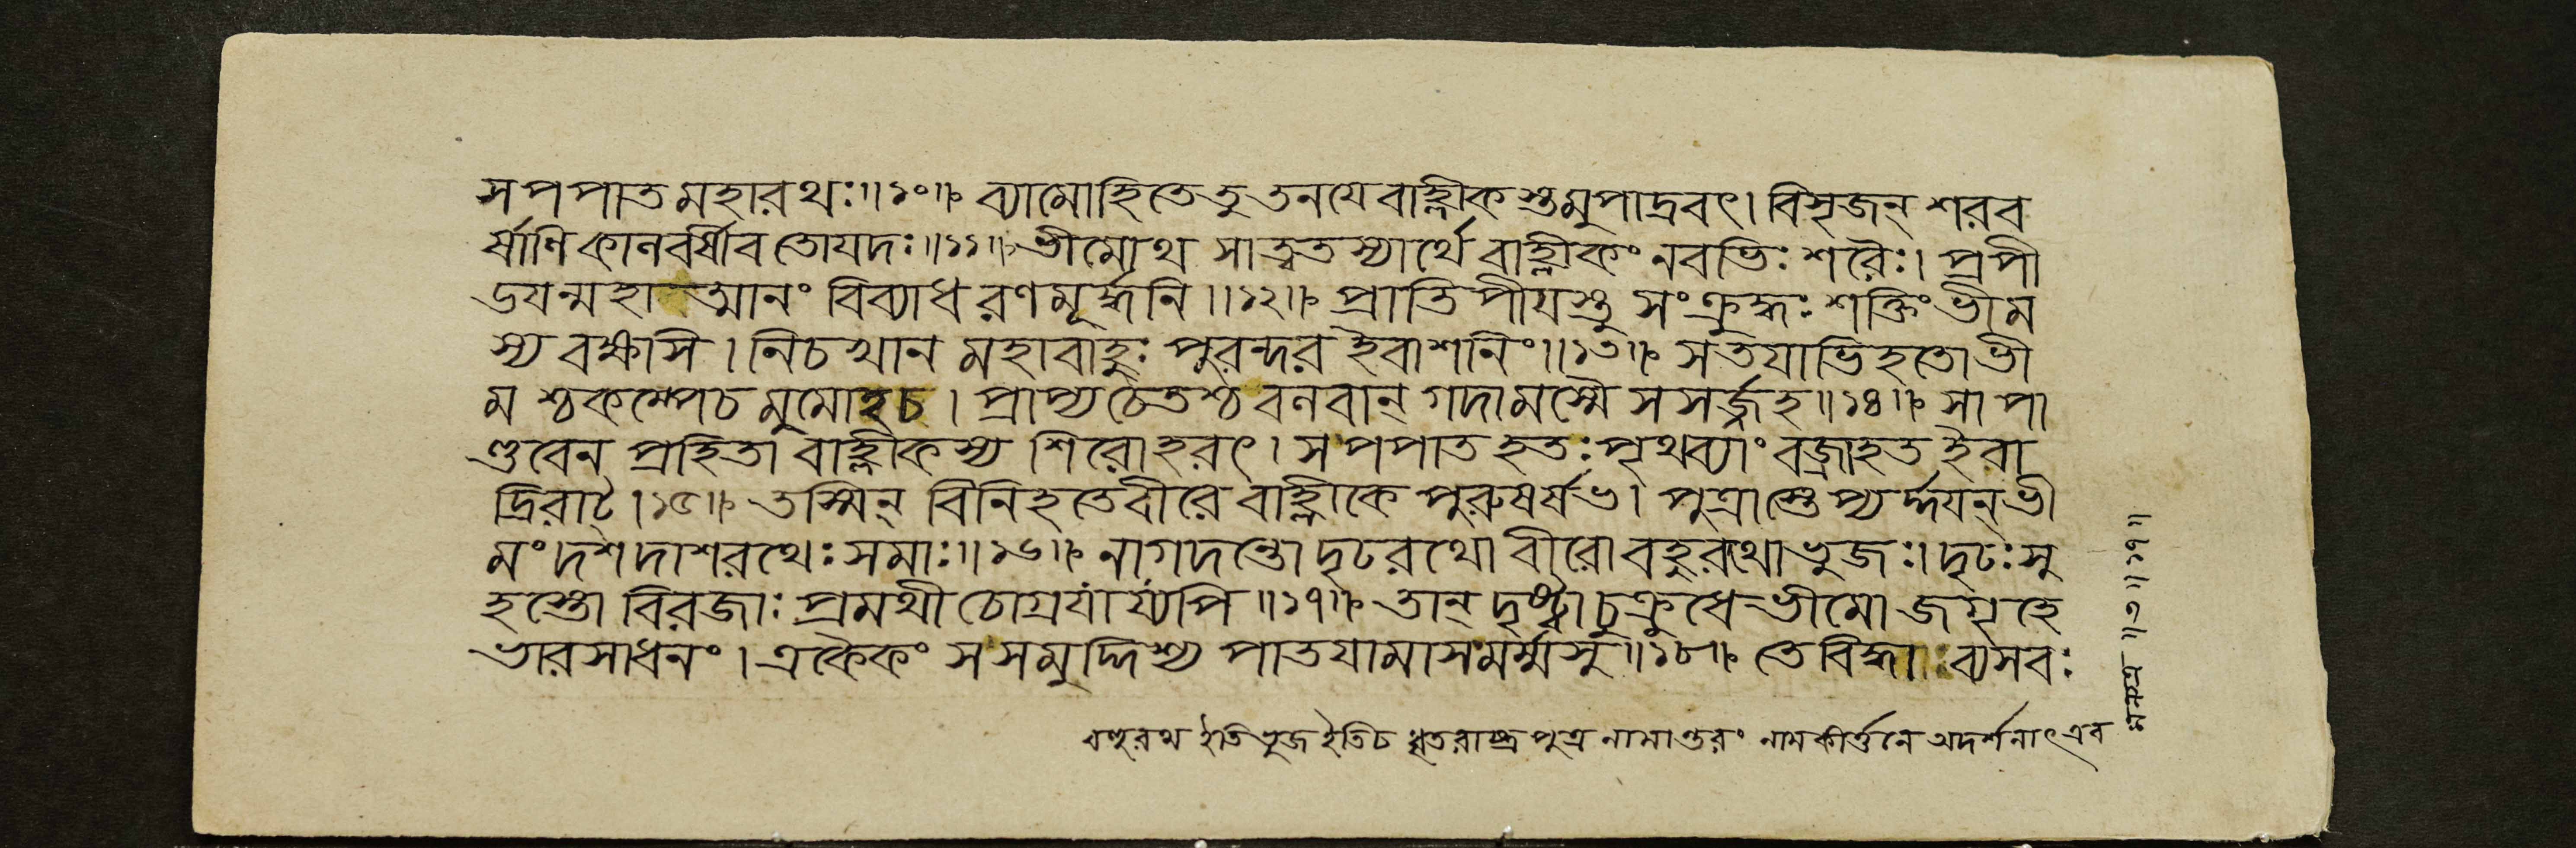 স পপাত মহারথঃ॥১০॥ ব্যামোহিতে তু তনযে বাহ্লীকস্তমুপাদ্রবৎ। বিসৃজন্ শরব
র্ষাণি কালবর্ষীব তোযদঃ॥১১॥ ভীমোথ সাত্বতস্যার্থে বাহ্লীকং নবভিঃ শরৈঃ। প্রপী
ডযন্মহাত্মানং বিব্যাধ রণমূর্দ্ধনি॥১২॥ প্রাতিপীযস্তু সংক্রুদ্ধঃ শক্তিং ভীম
স্য বক্ষসি। নিচখান মহাবাহুঃ পুরন্দর ইবাশনিং॥১৩॥ স তযাভিহতো ভী
মশ্চকম্পে চ মুমোহ চ। প্রাপ্য চেতশ্চ বলবান্ গদামস্মৈ সসর্জ্জ হ॥১৪॥ সা পা
ণ্ডবেন প্রহিতা বাহ্লীকস্য শিরোহরৎ। স পপাত হতঃ পৃথব্যাং বজ্রাহত ইবা
দ্রিরাট্।১৫॥ তস্মিন্ বিনিহতে বীরে বাহ্লীকে পুরুষর্ষভ। পুত্রাস্তেপ্যর্দ্দযন্ ভী
মং দশ দাশরথেঃ সমাঃ॥১৬॥ নাগদন্তো দৃঢরথো বীরো বহুরথো ভুজঃ। দৃঢঃ সু
হস্তো বিরজাঃ প্রমথী চোগ্রযায্যপি॥১৭॥ তান্ দৃষ্ট্বা চুক্রুধে ভীমো জগৃহে
ভারসাধনং। একৈকং স সমুদ্দিশ্য পাতযামাস মর্ম্মসু॥১৮॥ তে বিদ্ধাঃ ব্যসবঃ
বহুরথ ইতি ভুজ ইতি চ ধৃতরাষ্ট্র পুত্র নামান্তরং নামকীর্ত্তনে অদর্শনাৎ এব
॥৩॥॥১৭॥